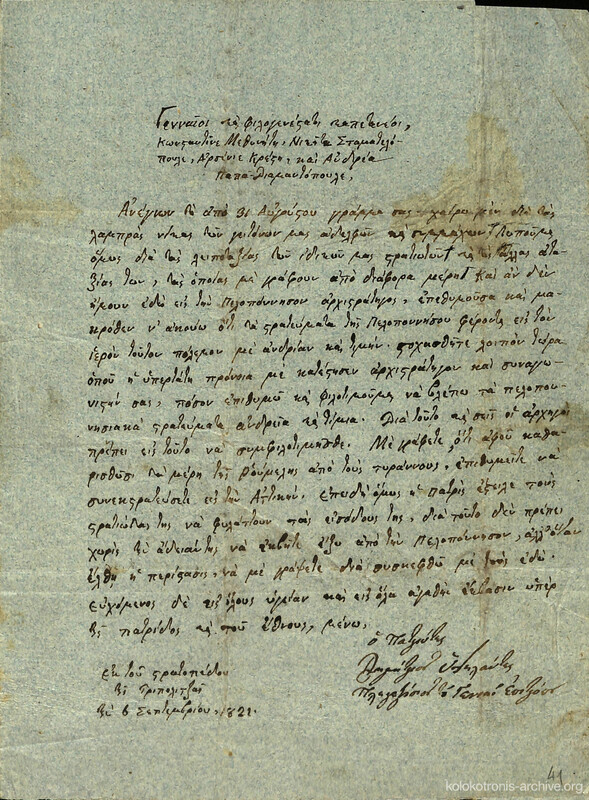 Γενναῖοι καὶ φιλογενέστατοι καπετανέοι,
Κωνσταντῖνε Μεθενίτη, Νικήτα Σταματελό-
πουλε, Ἀρσένιε Κρέζη, καὶ Ἀνδρέα
Παπα-Διαμαντόπουλε,
Ἀνέγνων τὸ ἀπὸ 31 Αὐγούστου γράμμα σας. χαίρω μὲν διὰ τὰς
λαμπρὰς νίκας τῶν γειτόνων μας ἀδελφῶν καὶ συμμάχων. λυποῦμαι
ὅμως διὰ τὰς λειποταξίας τῶν ἐδικῶν μας στρατιωτῶν καὶ τὰς ἄλλας ἀτα-
ξίας των, τὰς ὁποίας μὲ γράφουν ἀπὸ διάφορα μέρη. καὶ ἂν δὲν
ἤμουν ἐδῶ εἰς τὴν Πελοπόννησον ἀρχιστράτηγος, ἐπεθυμοῦσα καὶ μα-
κρόθεν ν' ἀκούω ὅτι τὰ στρατεύματα τῆς Πελοποννήσου φέρονται εἰς τὸν
ἱερὸν τοῦτον πόλεμον μὲ ἀνδρίαν καὶ τιμήν. στοχασθῆτε λοιπὸν τώρα
ὁποῦ ἡ ὑπερτάτη πρόνοια μὲ κατέστησεν ἀρχιστράτηγον καὶ συναγω-
νιστήν σας, πόσον ἐπιθυμῶ καὶ φιλοτιμοῦμαι νὰ βλέπω τὰ πελοπον-
νησιακὰ στρατεύματα ἀνδρεῖα καὶ τίμια. Διὰ τοῦτο καὶ σεῖς οἱ ἀρχηγοὶ
πρέπει εἰς τοῦτο νὰ συμφιλοτιμηθῆτε. Μὲ γράφετε, ὅτι ἀφοῦ καθα-
ρισθῶσι τὰ μέρη τῆς Ῥούμελης ἀπὸ τοὺς τυράννους, ἐπιθυμεῖτε νὰ
συνεκστρατεύσετε εἰς τὴν Ἀττικήν. ἐπειδὴ ὅμως ἡ πατρὶς ἔστειλε τοὺς
στρατιώτας της νὰ φυλάττουν τὰς εἰσόδους της, διὰ τοῦτο δὲν πρέπει
χωρὶς τὴν ἄδειάν της νὰ ἐκβῆτε ἔξω ἀπὸ τὴν Πελοπόννησον, ἀλλ' ὅταν
ἔλθῃ ἡ περίστασις, νὰ μὲ γράψετε διὰ νὰ συσκεφθῶ μὲ τοὺς ἐδῶ.
εὐχόμενος δὲ εἰς ὅλους ὑγείαν καὶ εἰς ὅλα ἀγαθὴν ἔκβασιν ὑπὲρ
τῆς πατρίδος καὶ τοῦ ἔθνους, μένω,
ὁ Πατριώτης
Δημήτριος Ὑψηλάντης
Πληρεξούσιος τοῦ Γενικοῦ Ἐπιτρόπου
Ἐκ τοῦ στρατοπέδου
τῆς Τριπολιτζᾶς
τῇ 6 Σεπτεμβρίου, 1821.
41
kolokotronis-archive.org